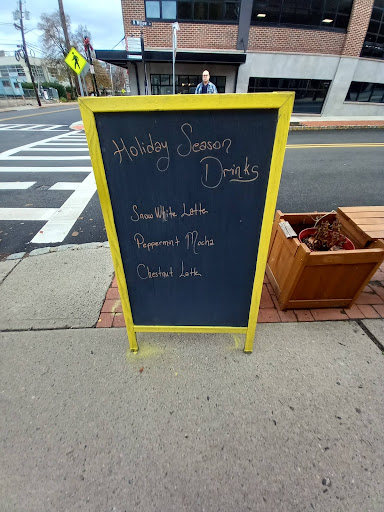 Holiday Season
Drinks
Snow White Latte
Peppermint Mocha
Chestnut Latte